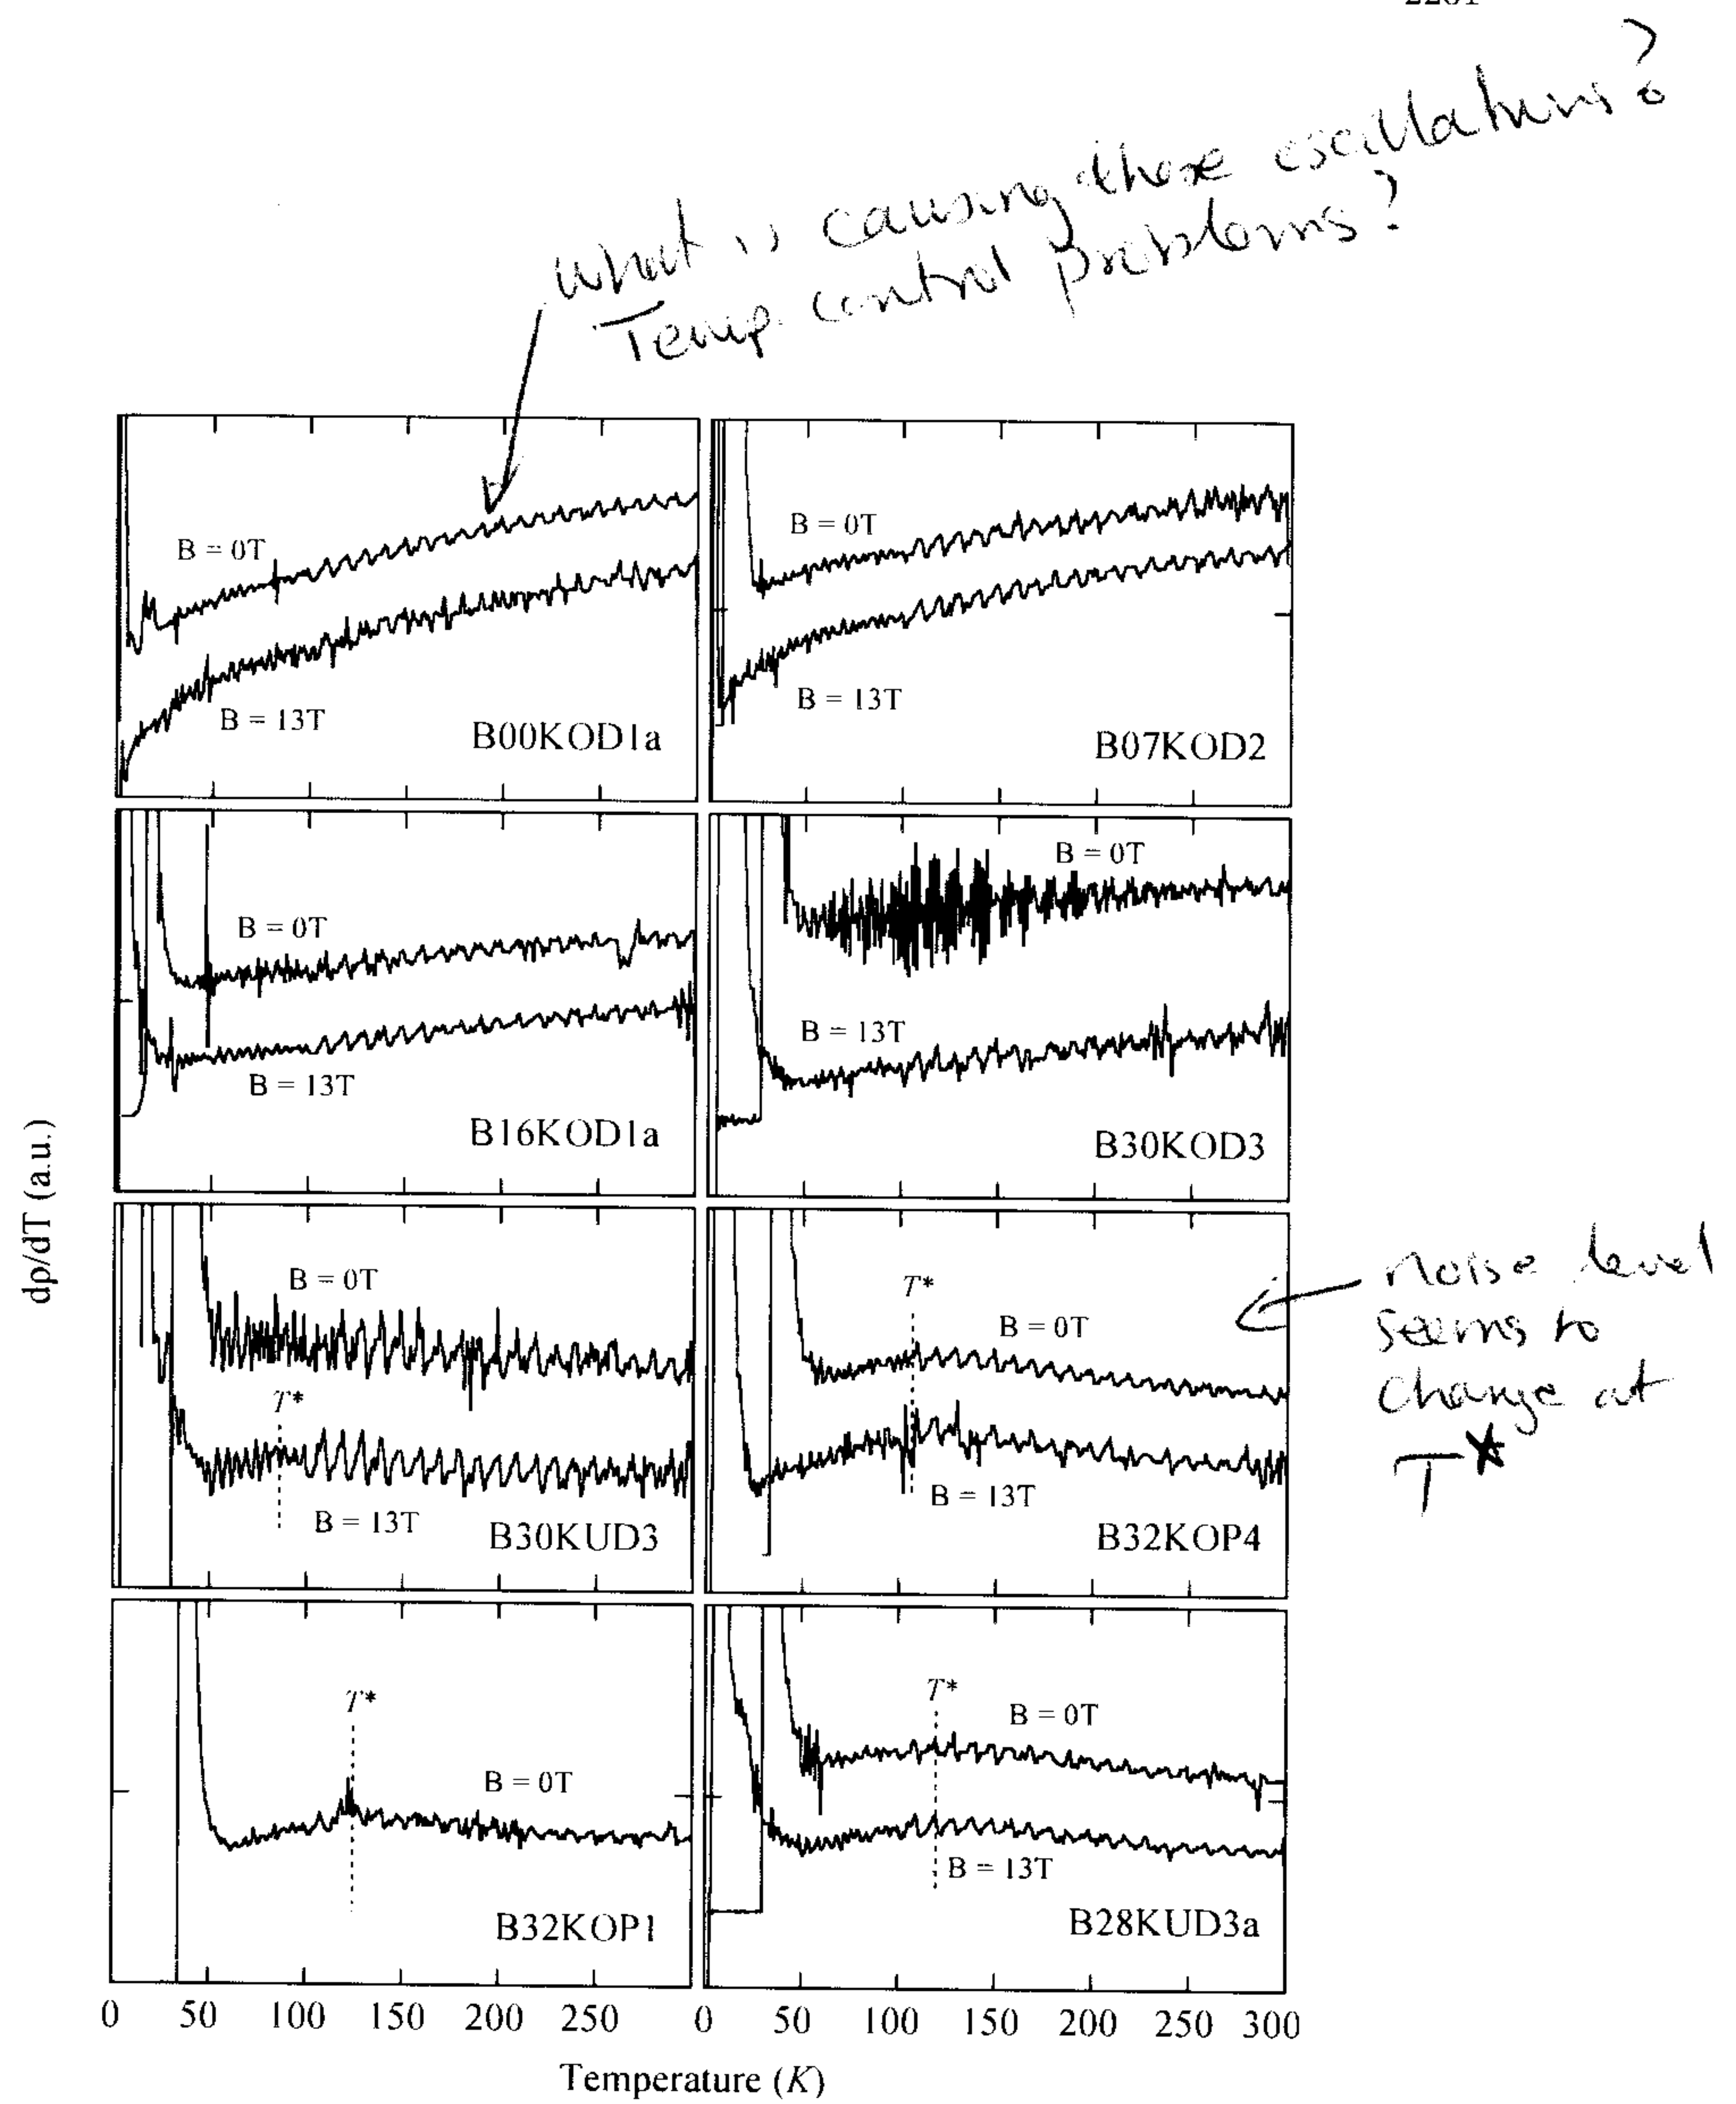 What is causing these oscillations?
Temp. control problems?
B = 0T
B = 13T
B00KOD1a
B = 0T
B = 13T
B07KOD2
B = 0T
B = 13T
B16KOD1a
B = 0T
B = 13T
B30KOD3
B = 0T
T*
B = 13T
B30KUD3
T*
B = 0T
B = 13T
B32KOP4
noise level
seems to
change at
T*
T*
B = 0T
B32KOP1
T*
B = 0T
B = 13T
B28KUD3a
dρ/dT (a.u.)
0 50 100 150 200 250 0 50 100 150 200 250 300
Temperature (K)